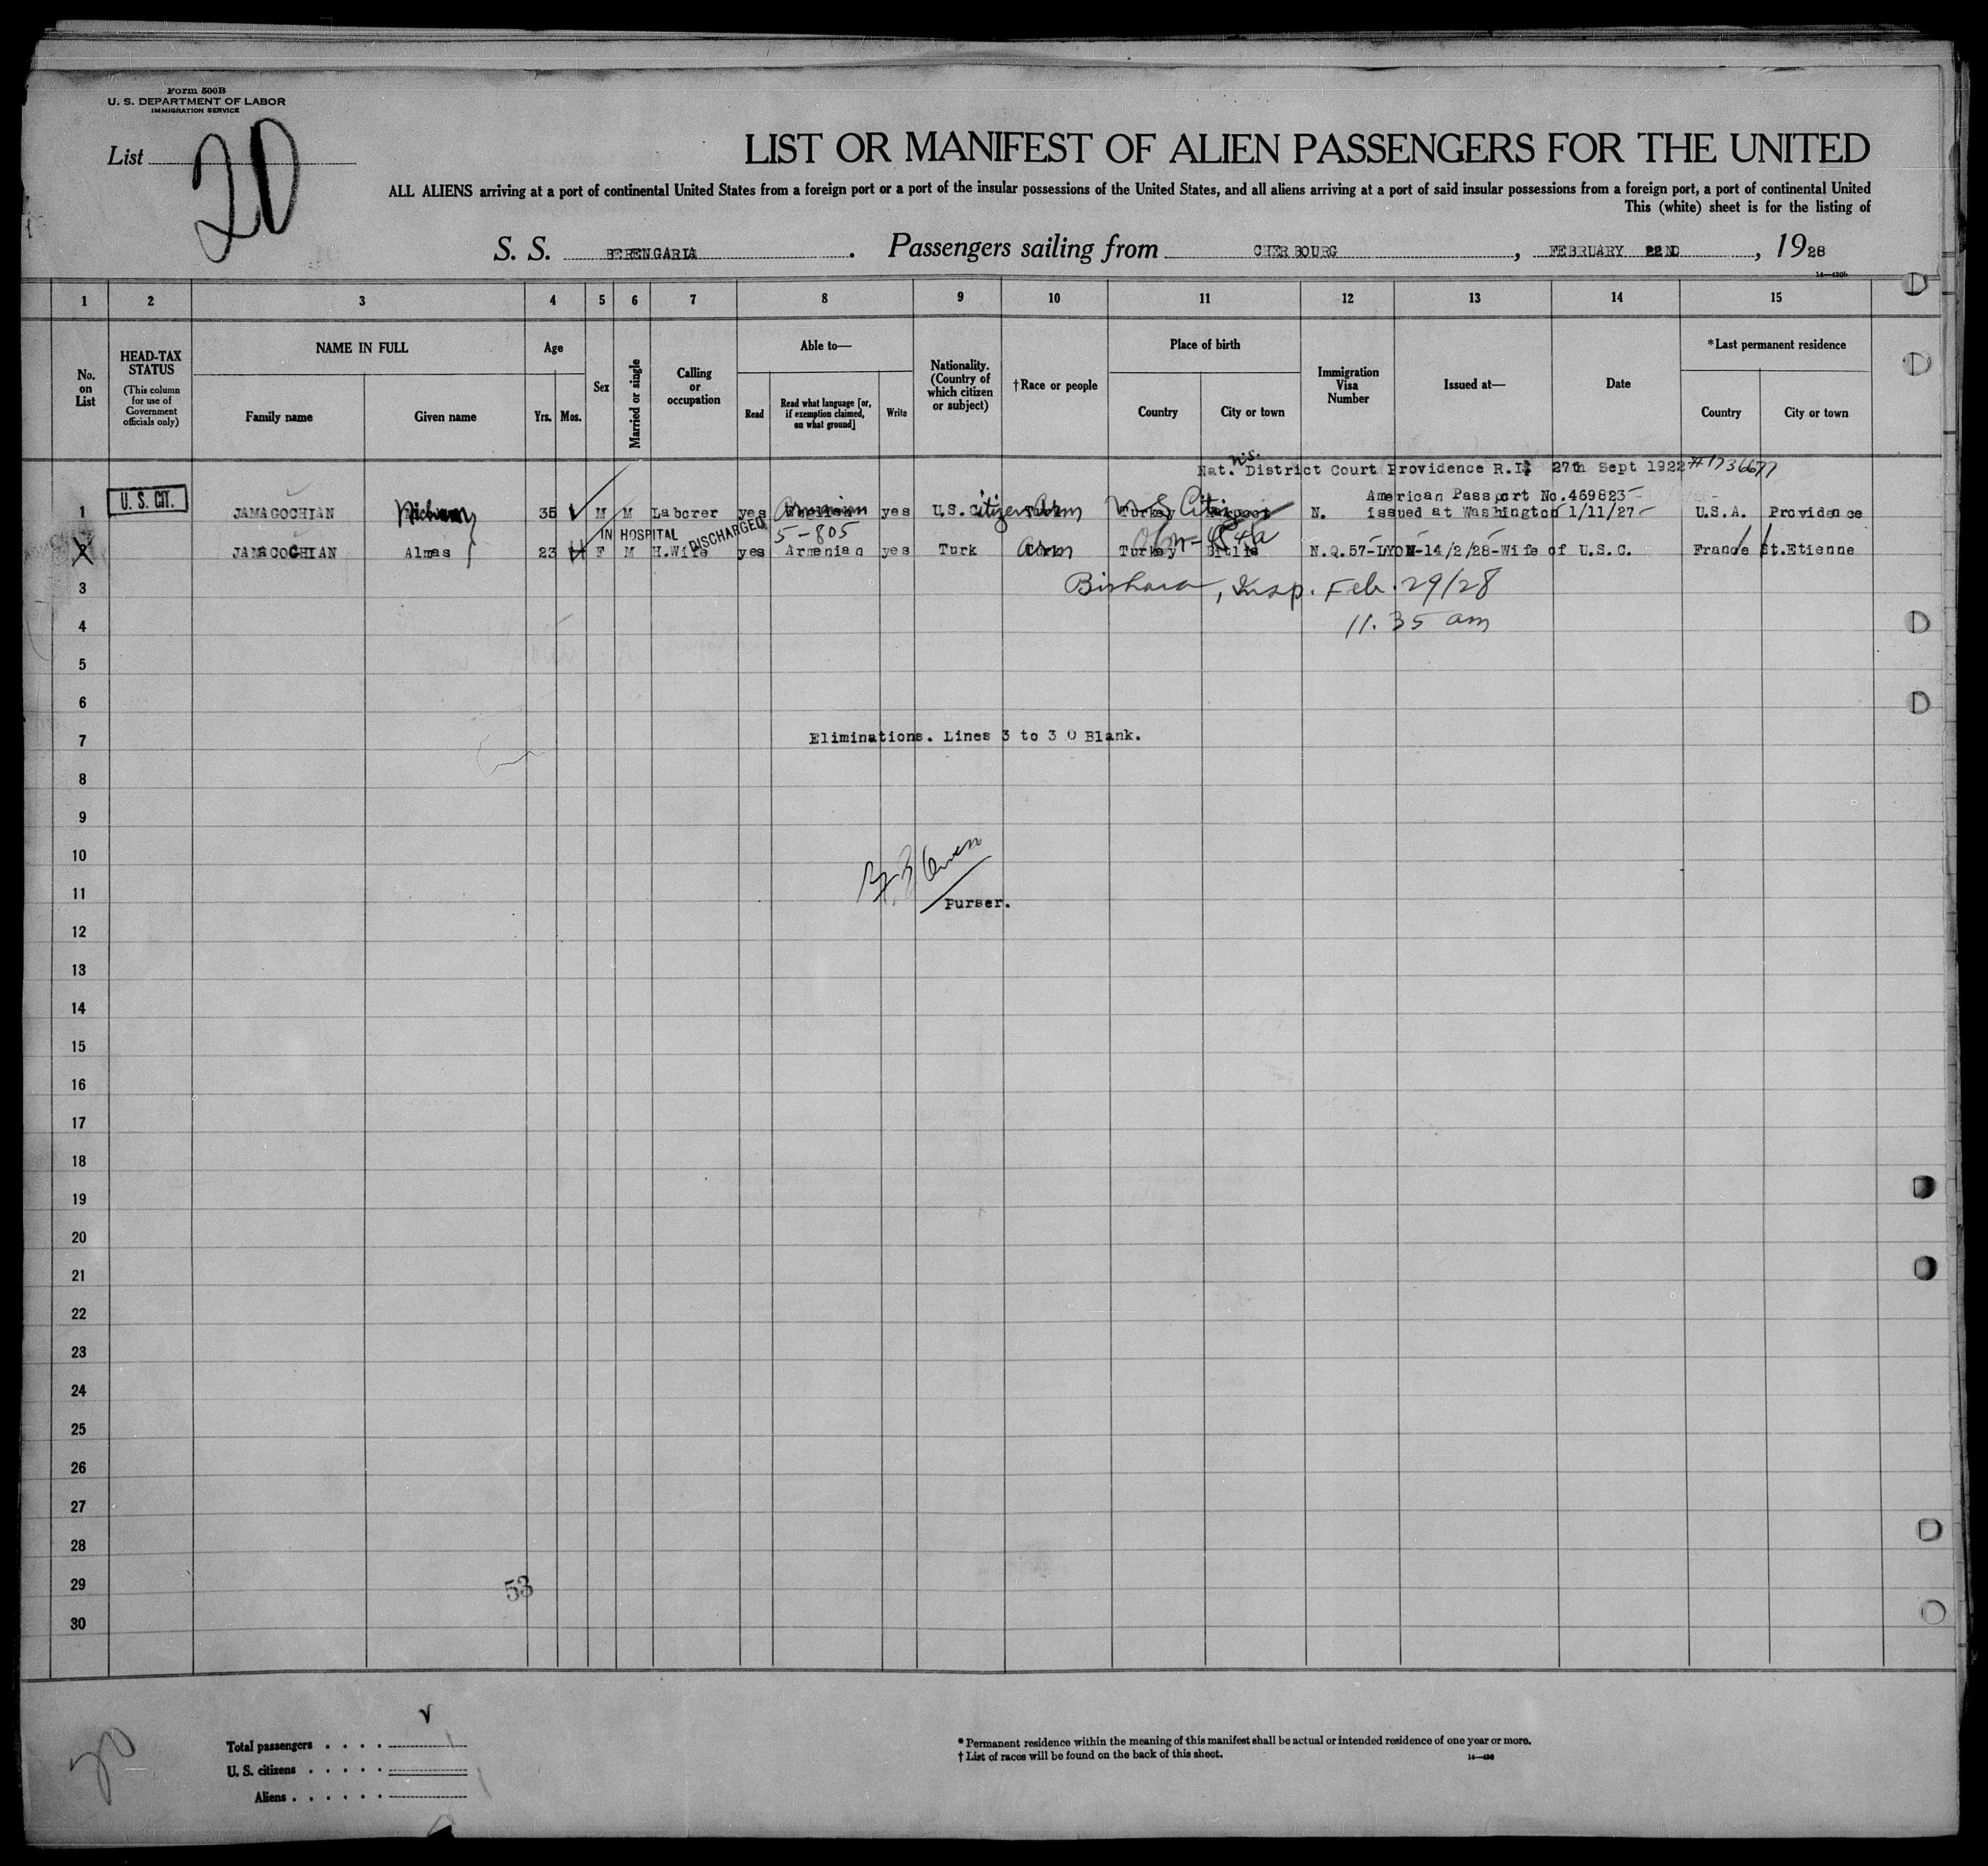 Form 500B
U. S. DEPARTMENT OF LABOR
IMMIGRATION SERVICE
List 20
LIST OR MANIFEST OF ALIEN PASSENGERS FOR THE UNITED
ALL ALIENS arriving at a port of continental United States from a foreign port or a port of the insular possessions of the United States, and all aliens arriving at a port of said insular possessions from a foreign port, a port of continental United
This (white) sheet is for the listing of
S. S. BERENGARIA. Passengers sailing from CHERBOURG, FEBRUARY 22ND, 1928
14—430b
1 2 3 4 5 6 7 8 9 10 11 12 13 14 15
No. on List
HEAD-TAX STATUS
(This column for use of Government officials only)
NAME IN FULL
Family name
Given name
Age
Yrs.
Mos.
Sex
Married or single
Calling or occupation
Able to—
Read
Read what language [or, if exemption claimed, on what ground]
Write
Nationality. (Country of which citizen or subject)
†Race or people
Place of birth
Country
City or town
Immigration Visa Number
Issued at—
Date
*Last permanent residence
Country
City or town
Nat. District Court Providence R.I. 27th Sept 1922 #1736677
n.s.
American Passport No.469823
1 U. S. CIT. JAMAGOCHIAN 35 M M Laborer yes Armenian yes U.S. Citizen Arm U S Citizen N. issued at Washington 1/11/27 U.S.A. Providence
IN HOSPITAL DISCHARGED 5-805
2 JAMAGOCHIAN Almas 23 F M H.Wife yes Armenian yes Turk Arm Turkey Bitlis N.Q.57-LYON-14/2/28-Wife of U.S.C. France St.Etienne
3 Bishara, Insp. Feb. 29/28
4 11.35 am
5
6
7 Eliminations. Lines 3 to 30 Blank.
8
9
10
11
Purser.
12
13
14
15
16
17
18
19
20
21
22
23
24
25
26
27
28
29 53
30
20
Total passengers
U. S. citizens
Aliens
* Permanent residence within the meaning of this manifest shall be actual or intended residence of one year or more.
† List of races will be found on the back of this sheet.
14—430